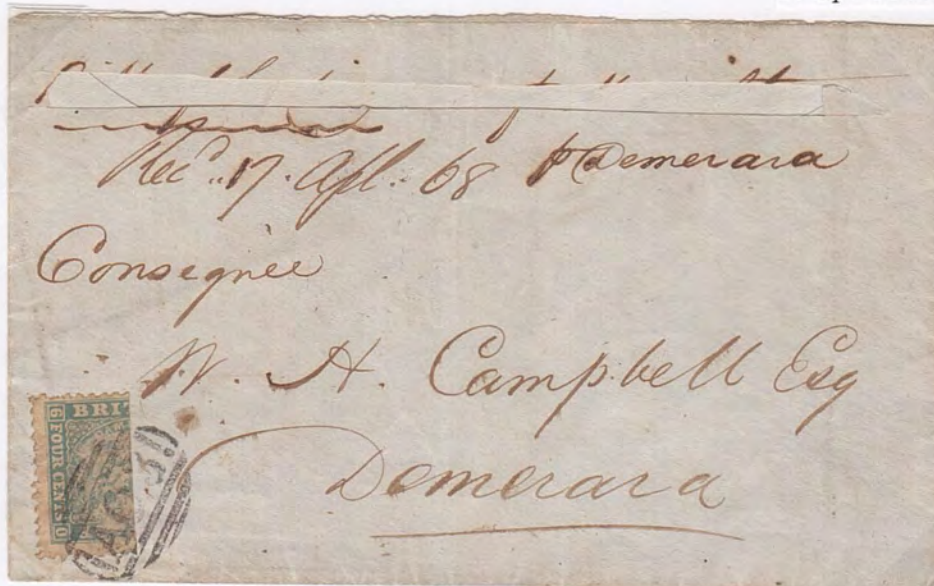 Rec'd.. 17. Apl. 68 p Demerara
Consignee
W. A. Campbell Esq
Demerara
BRIT
6 FOUR CENTS 0
A03